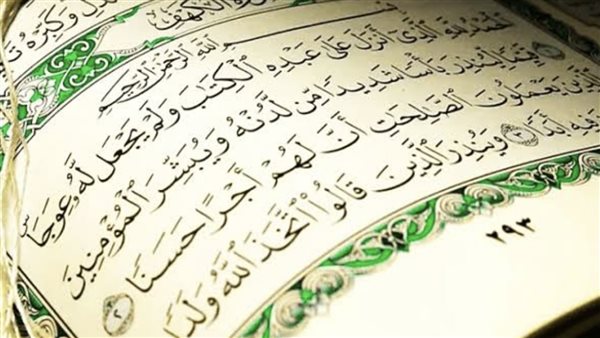 وَكَبِّرْهُ
الكهف
بِسْمِ اللَّهِ الرَّحْمَٰنِ الرَّحِيمِ
الْحَمْدُ لِلَّهِ الَّذِي أَنزَلَ عَلَىٰ عَبْدِهِ الْكِتَابَ وَلَمْ يَجْعَل لَّهُ عِوَجَا
قَيِّمًا لِّيُنذِرَ بَأْسًا شَدِيدًا مِّن لَّدُنْهُ وَيُبَشِّرَ الْمُؤْمِنِينَ
الَّذِينَ يَعْمَلُونَ الصَّالِحَاتِ أَنَّ لَهُمْ أَجْرًا حَسَنًا ٢
فِيهِ أَبَدًا ٣ وَيُنذِرَ الَّذِينَ قَالُوا اتَّخَذَ اللَّهُ وَلَدًا
٢٩٣